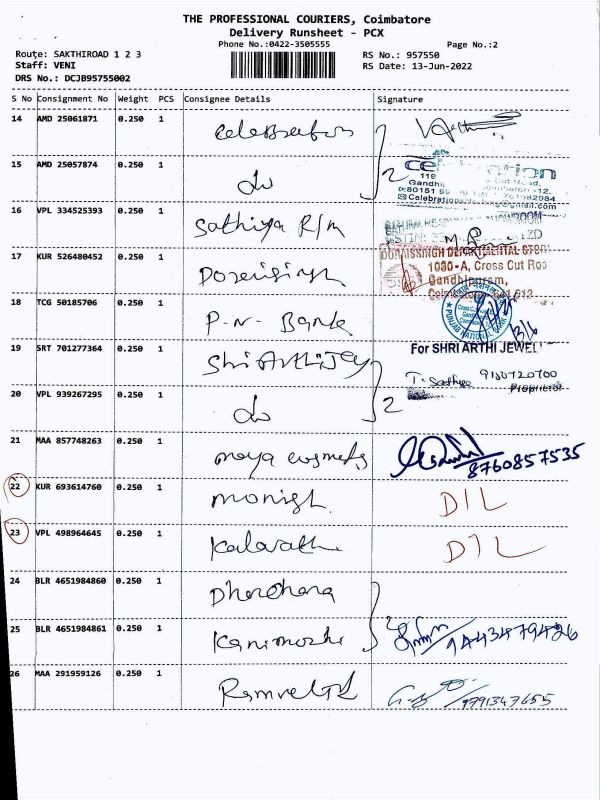 THE PROFESSIONAL COURIERS, Coimbatore
Delivery Runsheet - PCX
Phone No.:0422-3505555
Page No.:2
Route: SAKTHIROAD 1 2 3
RS No.: 957550
Staff: VENI
RS Date: 13-Jun-2022
DRS No.: DCJB95755002
S No Consignment No Weight PCS Consignee Details Signature
14 AMD 25061871 0.250 1 Celebration
15 AMD 25057874 0.250 1 do 2
119
Gandhi
16 VPL 334525393 0.250 1 Sathiya R/m
17 KUR 526480452 0.250 1
DORAISSINGH DEPARTMENTAL STORE
1080-A, Cross Cut Roa
Gandhipuram,
18 TCG 50185706 0.250 1 P.N. Bank
PUNJAB NATIONAL BANK
13/6
19 SRT 701277364 0.250 1
For SHRI ARTHI JEWEL
Proprietor
20 VPL 939267295 0.250 1 do 2
21 MAA 857748263 0.250 1 maya cosmetics 8760857535
22 KUR 693614760 0.250 1 monish DIL
23 VPL 498964645 0.250 1 DIL
24 BLR 4651984860 0.250 1
25 BLR 4651984861 0.250 1 Kanimozhi 2 9443479426
26 MAA 291959126 0.250 1 9791347655